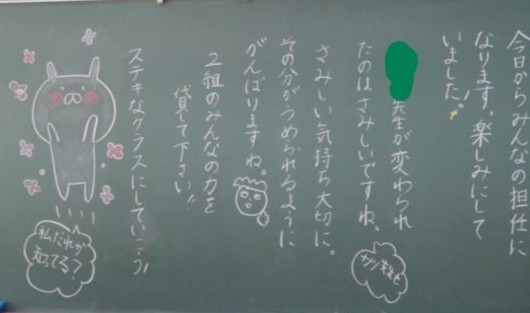 今日からみんなの担任に
なります。楽しみにして
いました!
先生が変わられ
たのはさみしいですね。
さみしい気持ち大切に。
その分がつめられるように
がんばりますね。
2組のみんなの力を
貸して下さい!!
ステキなクラスにしていこう!
私だれか
知ってる?